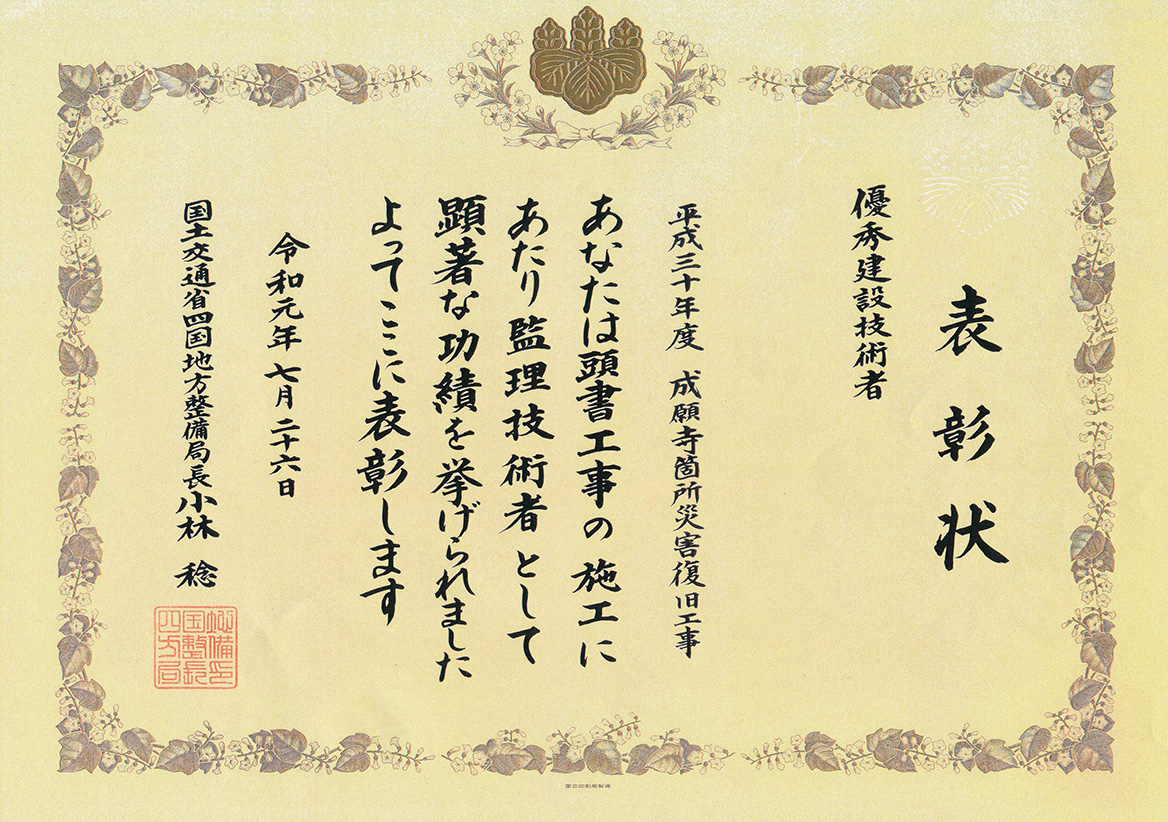 表彰状
優秀建設技術者
平成三十年度 成願寺箇所災害復旧工事
あなたは頭書工事の施工に
あたり監理技術者として
顕著な功績を挙げられました
よってここに表彰します
令和元年七月二十六日
国土交通省四国地方整備局長 小林 稔